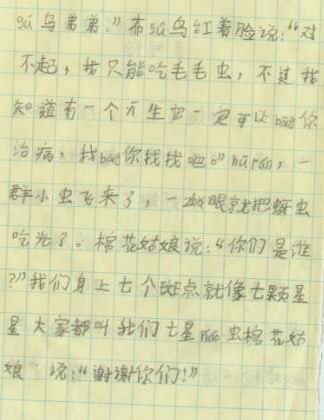 gú 鸟弟弟。”布gǔ鸟红着脸说：“对
不起，我只能吃毛毛虫，不过我
知道有一个万生它一定可以bāng你
治病，我bāng你找找吧。”hū rán，一
群小虫飞来了，一zhǎ眼就把蚜虫
吃光了。棉花姑娘说：“你们是谁
？”我们身上七个斑点就像七颗星
星大家都叫我们七星piáo虫棉花姑
娘 说：“谢谢你们！”